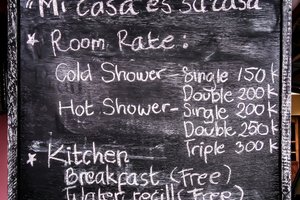 "Mi casa es su casa"
* Room Rate:
Cold Shower - Single 150 K
Double 200 K
Hot Shower - Single 200 K
Double 250 K
Triple 300 K
* Kitchen
Breakfast (Free)
Water refill (Free)